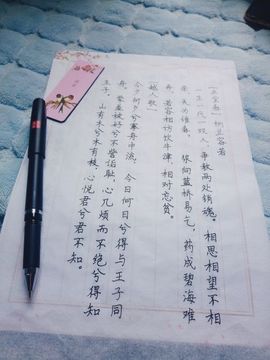 「画堂春」纳兰容若
一生一代一双人，争教两处销魂。相思相望不相
亲，天为谁春。浆向蓝桥易乞，药成碧海难
奔。若容相访饮牛津，相对忘贫。
「越人歌」
今夕何夕兮搴舟中流，今日何日兮得与王子同
舟。蒙羞被好兮不訾诟耻，心几烦而不绝兮得知
王子。山有木兮木有枝，心悦君兮君不知。